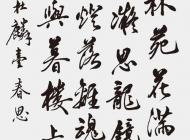 林苑花滿
凝思龍鏡
落離魂
與暮樓上
杜麟臺 春思